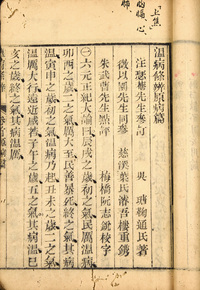 上焦
溫病條辨原病篇
汪瑟菴先生參訂 吳 瑭鞠通氏著
徵以園先生同參 慈溪葉氏濬吾樓重鐫
朱武曹先生點評 梅橋阮志銳校字
㊀六元正紀大論曰辰戌之歲初之氣民厲溫病
卯酉之歲二之氣厲大至民善暴死終之氣其病
溫寅申之歲初之氣溫病乃起丑未之歲二之氣
溫厲大行遠近咸若子午之歲五之氣其病溫巳
亥之歲終之氣其病溫厲